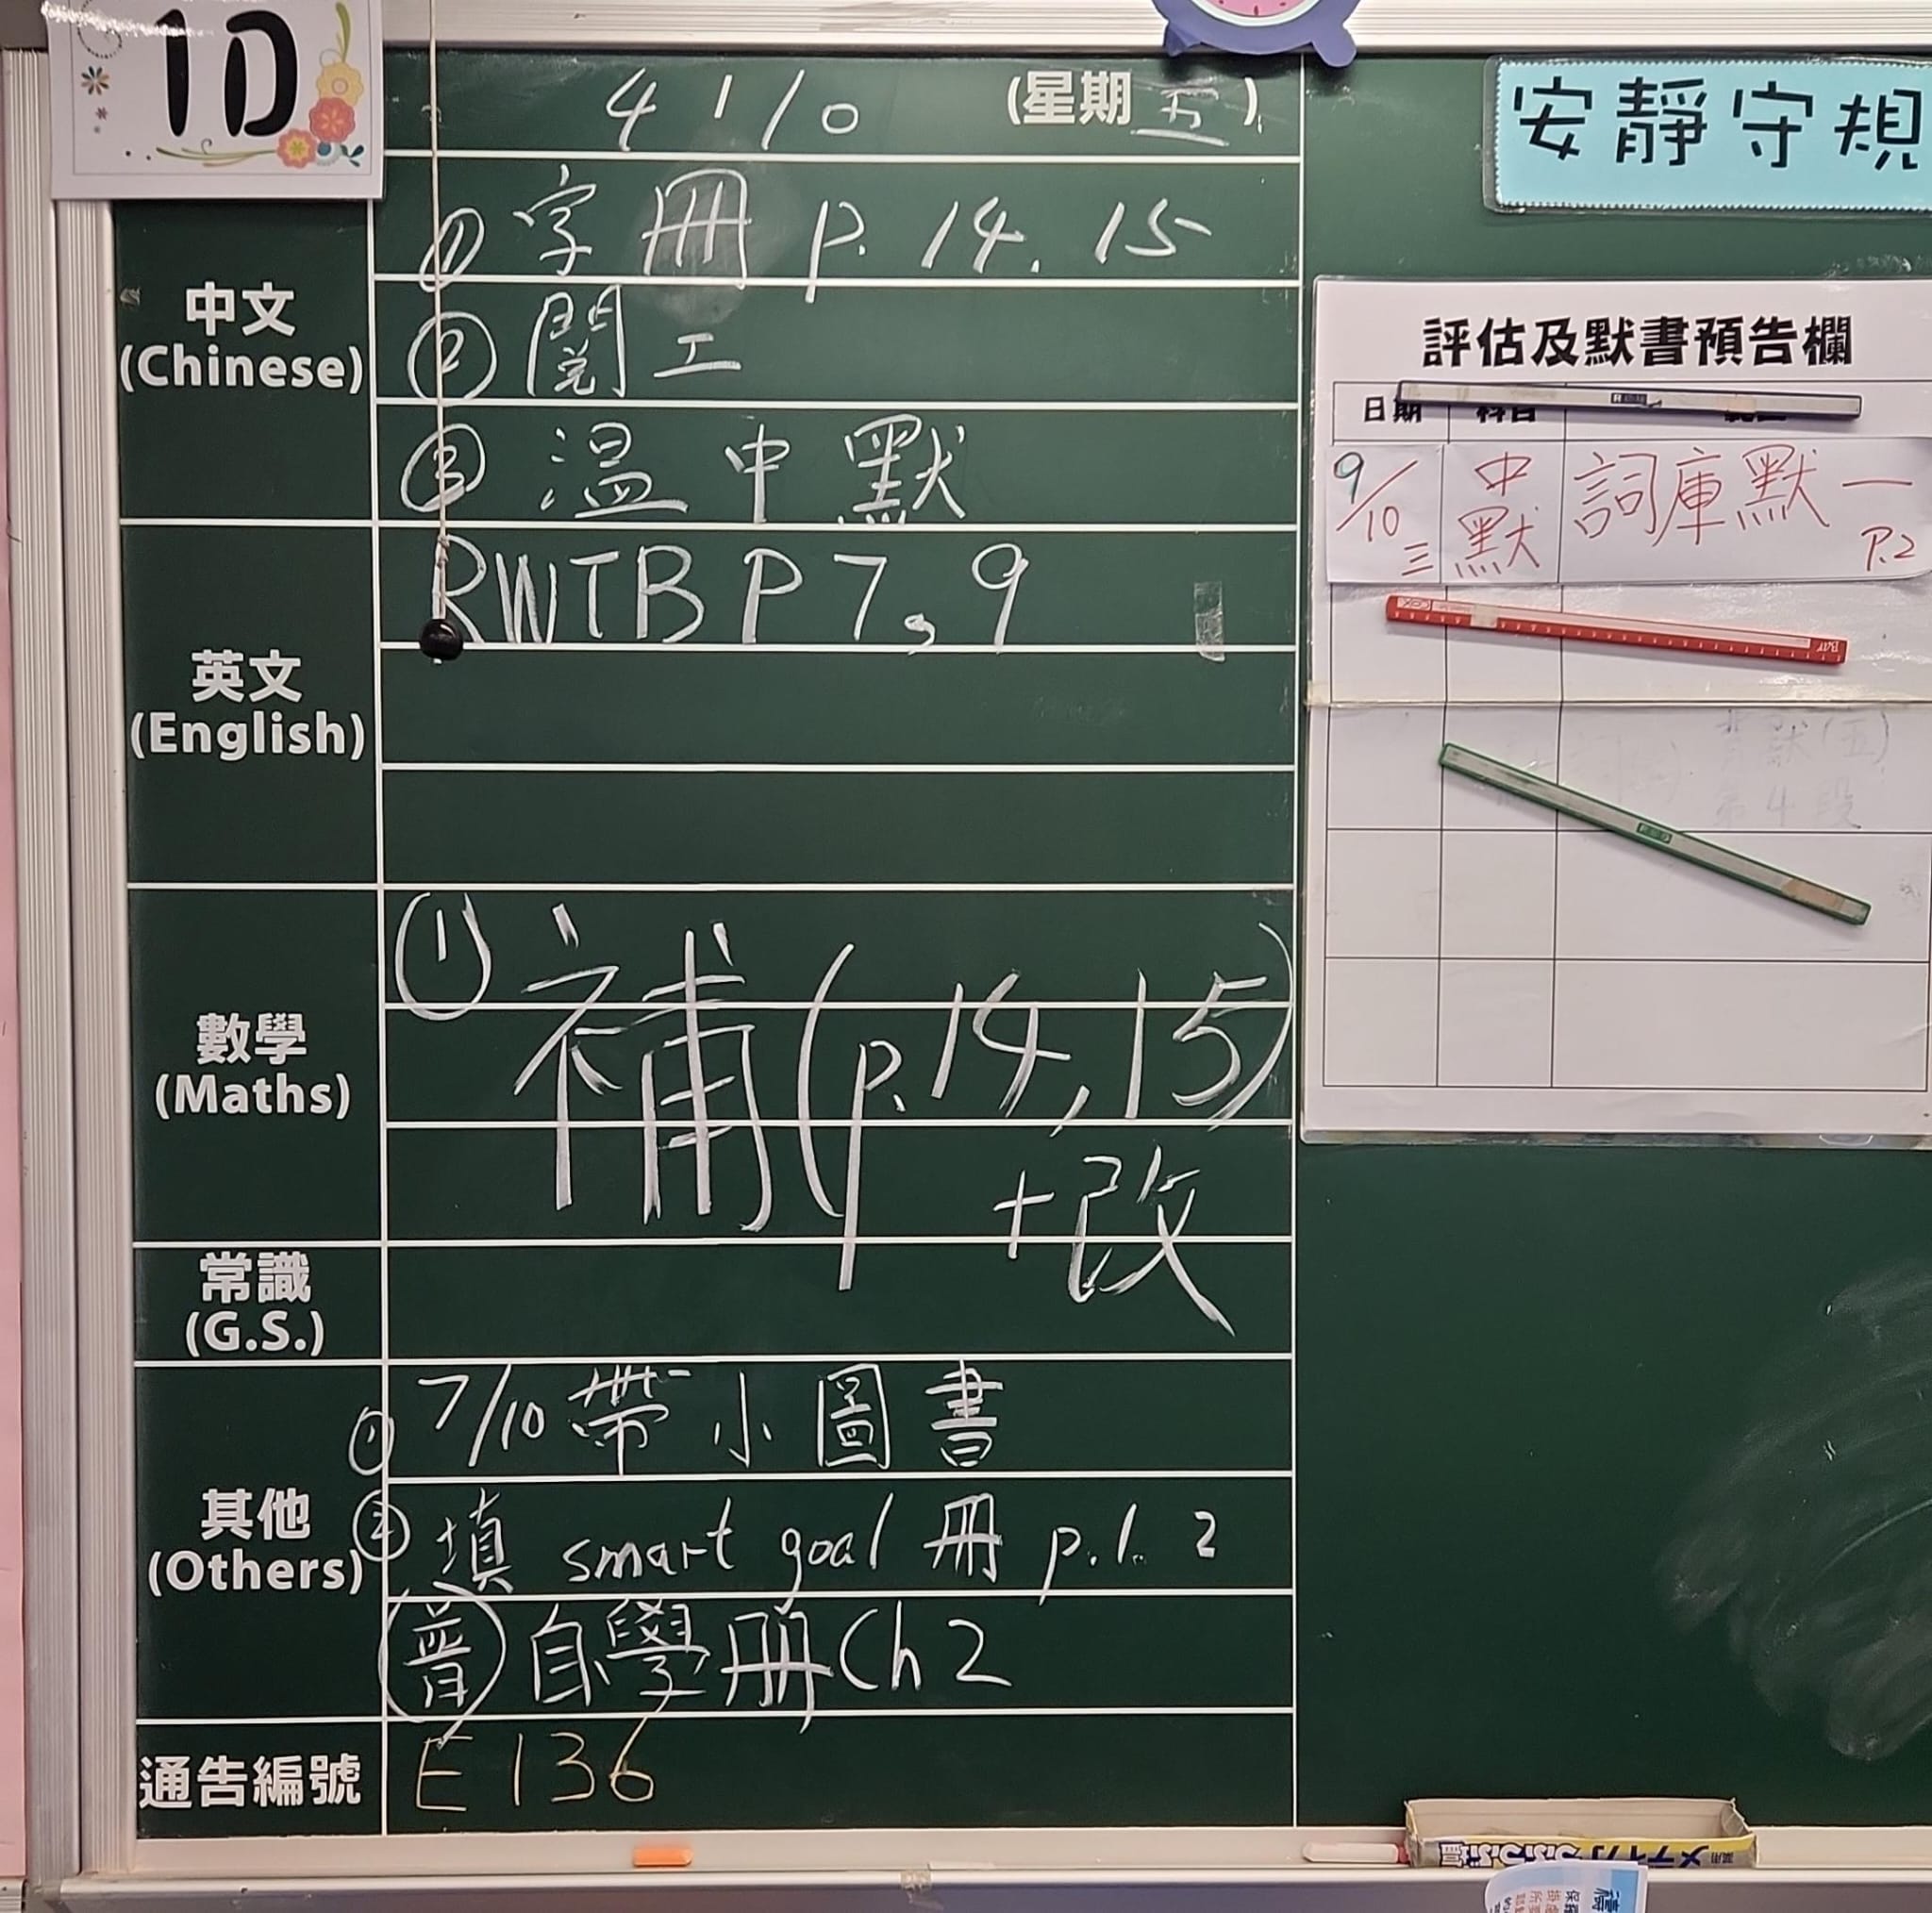 1D
4 / 10 (星期五)
安靜守規
中文
(Chinese)
① 字冊 p. 14. 15
② 閱工
③ 溫中默
英文
(English)
RWTB P 7, 9
數學
(Maths)
① 補(p.14,15)
+改
常識
(G.S.)
其他
(Others)
① 7/10 帶小圖書
② 填 smart goal 冊 p.1. 2
普 自學冊 Ch 2
通告編號
E 136
評估及默書預告欄
日期 科目
9/10 三 中默 詞庫默一 P.2
默(五)
第4段